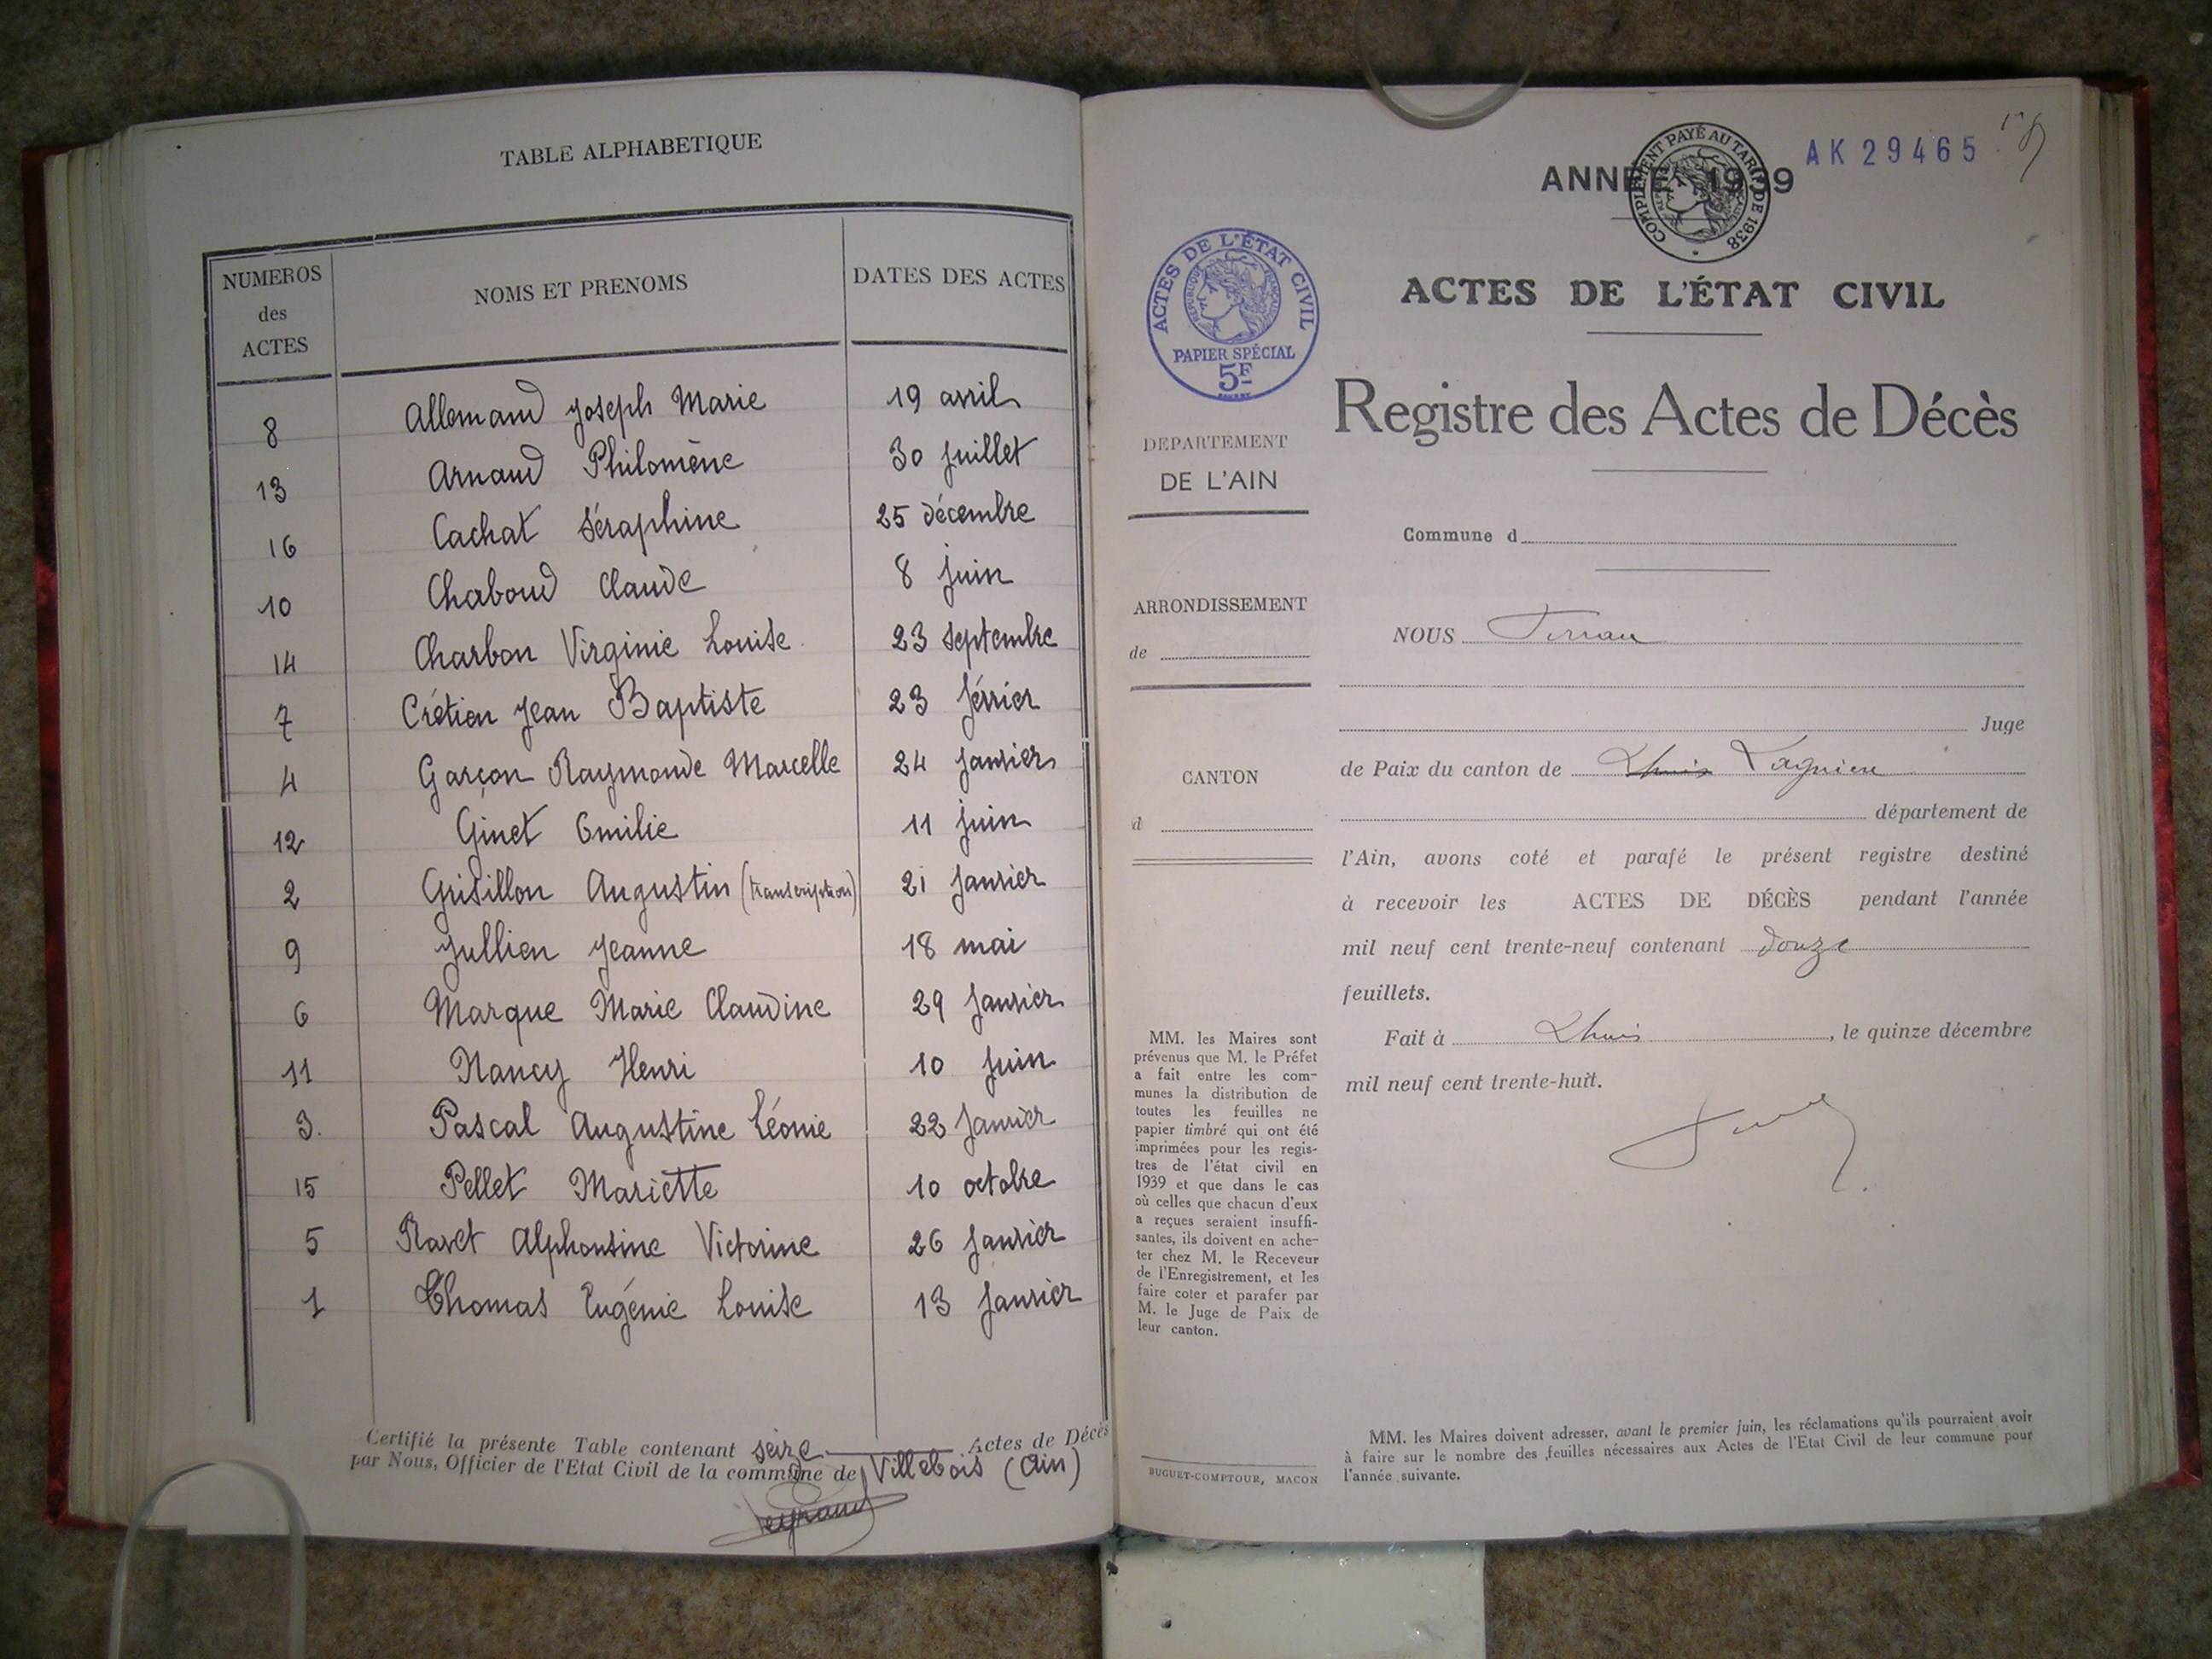 TABLE ALPHABETIQUE
NUMEROS des ACTES
NOMS ET PRENOMS
DATES DES ACTES
8 Allemand Joseph Marie 19 avril
13 Arnaud Philomène 30 juillet
16 Cachat Séraphine 25 décembre
10 Chaboud Claude 8 juin
14 Charbon Virginie Louise 23 septembre
7 Crétien Jean Baptiste 23 février
4 Garçon Raymonde Marcelle 24 janvier
12 Ginet Emilie 11 juin
2 Grisillon Augustin (transcription) 21 janvier
9 Jullien Jeanne 18 mai
6 Marque Marie Claudine 29 janvier
11 Nancy Henri 10 juin
3. Pascal Augustine Léonie 22 janvier
15 Pellet Mariette 10 octobre
5 Ravet Alphonsine Victorine 26 janvier
1 Thomas Eugénie Louise 13 janvier
Certifié la présente Table contenant seize Actes de Décès
par Nous, Officier de l'Etat Civil de la commune de Villebois (Ain)
AK 29465
ANNÉE 1939
COMPLÉMENT PAYÉ AU TARIF DE 1938
ACTES DE L'ÉTAT CIVIL
RÉPUBLIQUE FRANÇAISE
PAPIER SPÉCIAL
5F
ACTES DE L'ÉTAT CIVIL
Registre des Actes de Décès
DEPARTEMENT
DE L'AIN
Commune d
ARRONDISSEMENT
de
NOUS
Juge
CANTON
d
de Paix du canton de Lhuis Lagnieu
département de
l'Ain, avons coté et parafé le présent registre destiné
à recevoir les ACTES DE DÉCÈS pendant l'année
mil neuf cent trente-neuf contenant douze
feuillets.
Fait à Lhuis, le quinze décembre
mil neuf cent trente-huit.
MM. les Maires sont
prévenus que M. le Préfet
a fait entre les com-
munes la distribution de
toutes les feuilles ne
papier timbré qui ont été
imprimées pour les regis-
tres de l'état civil en
1939 et que dans le cas
où celles que chacun d'eux
a reçues seraient insuffi-
santes, ils doivent en ache-
ter chez M. le Receveur
de l'Enregistrement, et les
faire coter et parafer par
M. le Juge de Paix de
leur canton.
BUGUET-COMPTOUR, MACON
MM. les Maires doivent adresser, avant le premier juin, les réclamations qu'ils pourraient avoir
à faire sur le nombre des feuilles nécessaires aux Actes de l'Etat Civil de leur commune pour
l'année suivante.